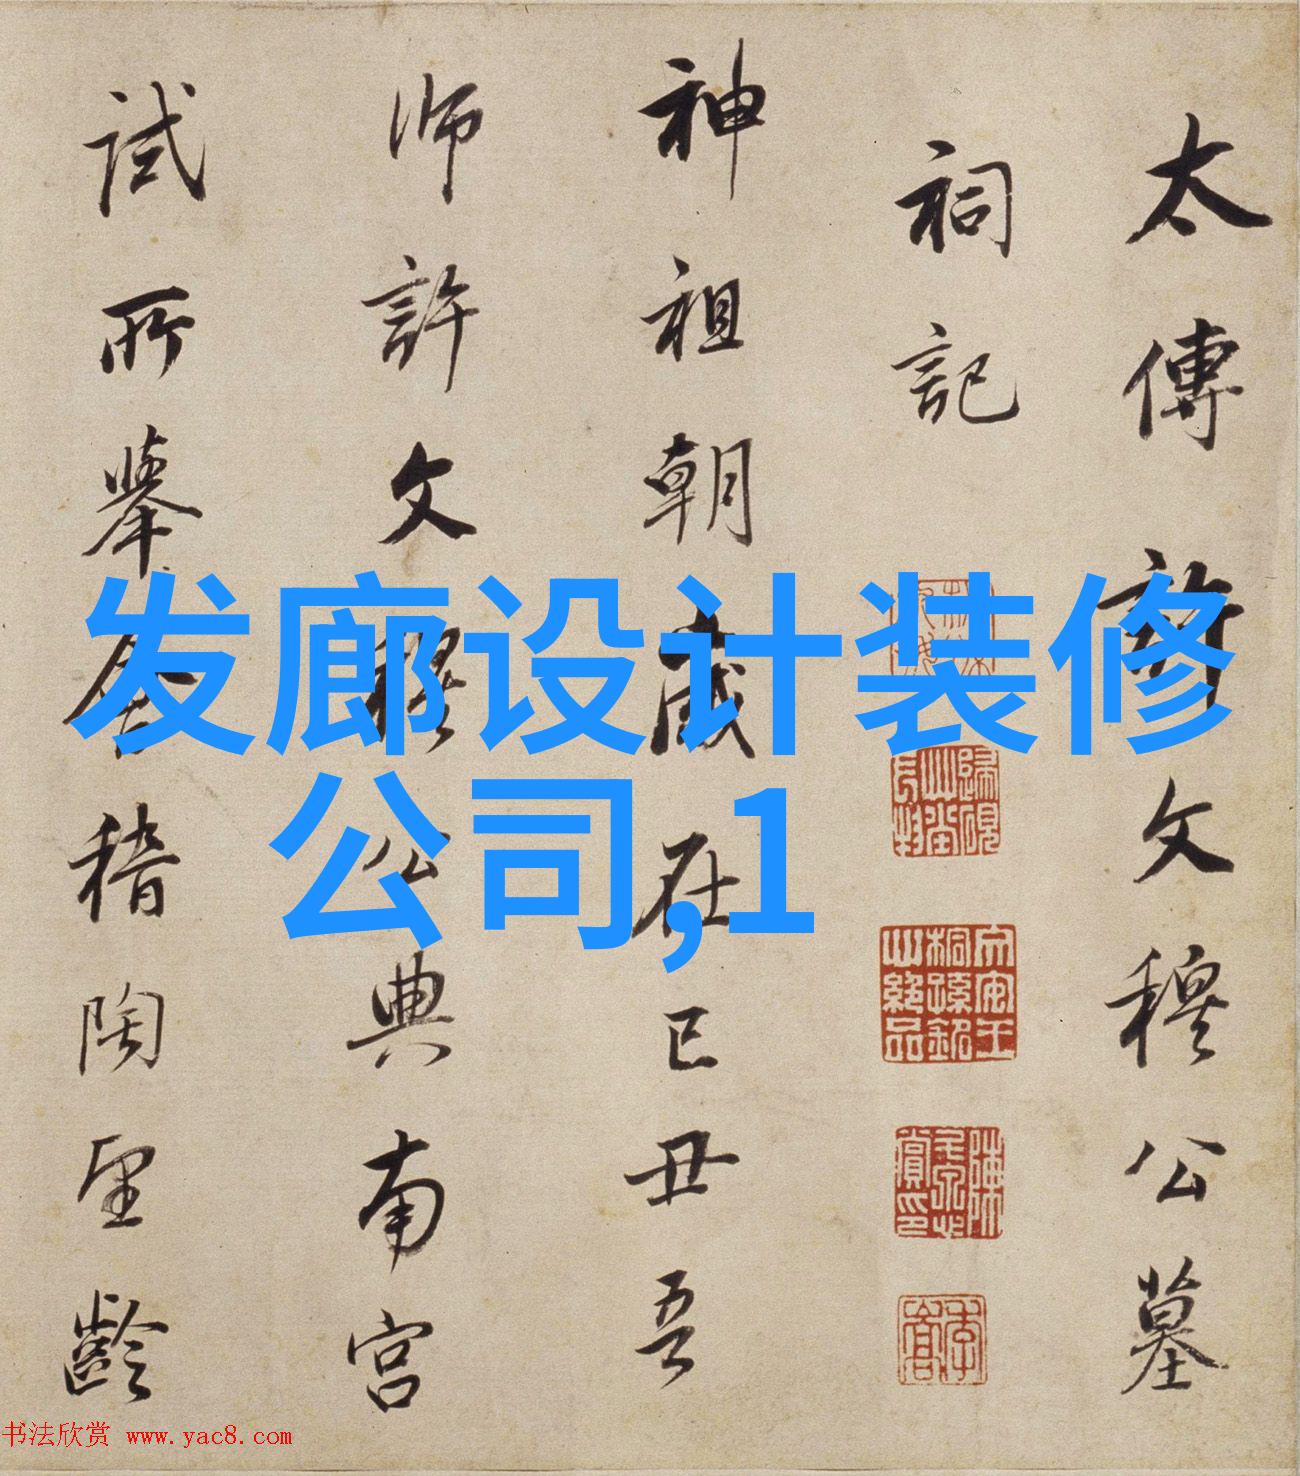 太傅許文穆公墓
祠記
神祖朝歲在已丑吾
師許文穆公典南宮
試所舉會稽陶望齡
发廊设计装修
公司,1
书法欣赏 www.yac8.com